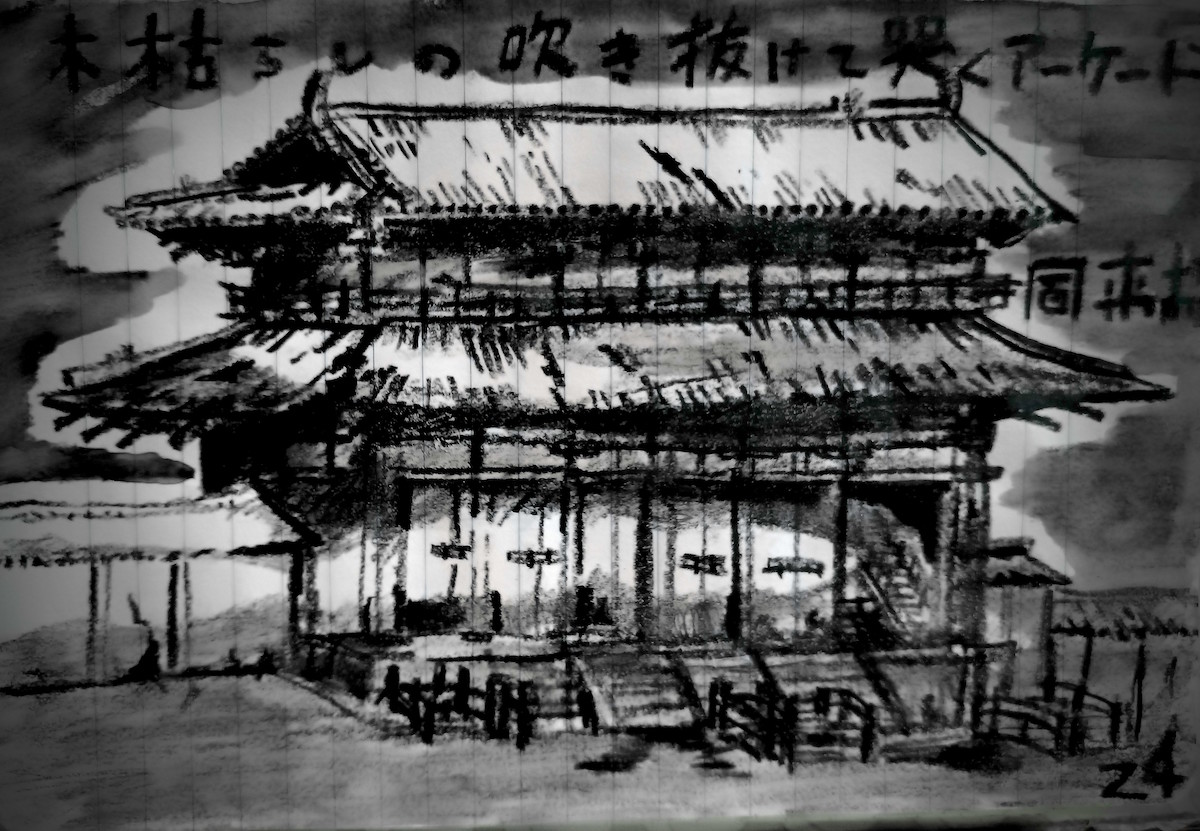 木枯らしの吹き抜けて哭くアーケード
来
24